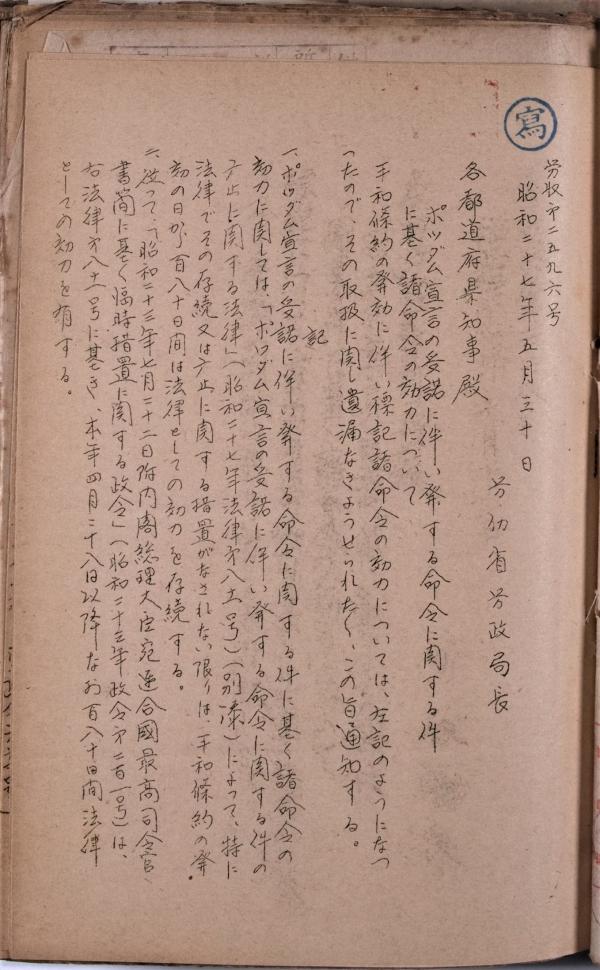 寫
労収才二五九六号
昭和二十七年五月三十日
労仂省労政局長
各都道府県知事殿
ポツダム宣言の受諾に伴い発する命令に関する件
に基く諸命令の効力について
平和條約の発効に伴い標記諸命令の効力については、左記のようになつ
つたので、その取扱に関し遺漏なきようせられたく、この旨通知する。
記
一、ポツダム宣言の受諾に伴い発する命令に関する件に基く諸命令の
効力に関しては、「ポツダム宣言の受諾に伴い発する命令に関する件の
廃止に関する法律」(昭和二十七年法律才八十一号)(別添)によって、特に
法律でその存続又は廃止に関する措置がなされない限りは、平和條約の発
効の日から百八十日間は法律としての効力を存続する。
二、従って、「昭和二十三年七月二十二日附内閣総理大臣宛連合國最高司令官
書簡に基く臨時措置に関する政令」(昭和二十三年政令才二百一号)は、
右法律才八十一号に基き、本年四月二十八日以降なお百八十日間法律
としての効力を有する。